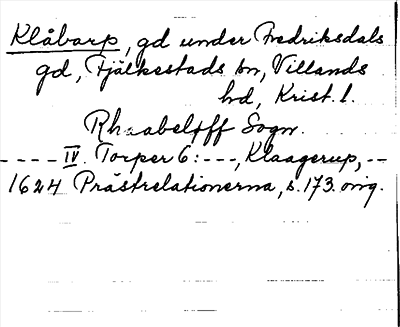 Klåbarp, gd under Fredriksdals
gd, Fjälkestads sn, Villands
hd, Krist. l.
Rhaabelöff Sogn.
---- IV. Torper 6: ---, Klaagerup, --
1624 Prästrelationerna, s. 173. orig.